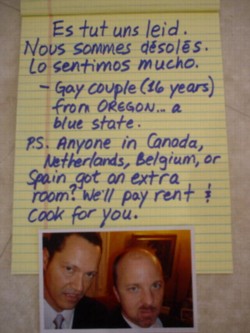 Es tut uns leid.
Nous sommes désolés.
Lo sentimos mucho.
- Gay couple (16 years)
from OREGON... a
blue state.
P.S. Anyone in Canada,
Netherlands, Belgium, or
Spain got an extra
room? We'll pay rent &
cook for you.